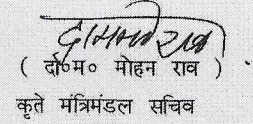 ( दो०म० मोहन राव )
कृते मंत्रिमंडल सचिव